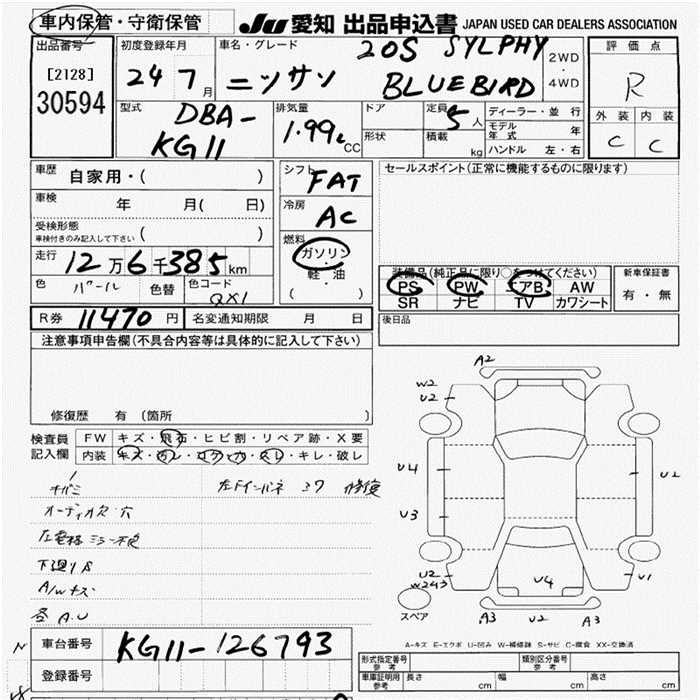 車内保管・守衛保管
JU 愛知 出品申込書 JAPAN USED CAR DEALERS ASSOCIATION
出品番号
[2128]
30594
初度登録年月
24 7月
車名・グレード
ニッサン
20S SYLPHY
BLUEBIRD
2WD
・
4WD
評価点
R
外装 内装
C C
型式
DBA-
KG11
排気量
1.99L
CC
ドア
形状
定員
5人
積載
kg
ディーラー・並行
モデル年式 年
ハンドル 左・右
車歴
自家用・( )
車検
年 月( 日)
受検形態
車検付きのみ記入して下さい ( )
走行
12万6千385km
色 パール 色替 色コード QX1
シフト
FAT
冷房
AC
燃料
ガソリン
軽・油
( )
セールスポイント(正常に機能するものに限ります)
装備品(純正品に限り○をつけてください)
PS PW エアB AW
SR ナビ TV カワシート
新車保証書
有・無
R券 11470円 名変通知期限 月 日
後日品
注意事項申告欄(不具合内容等は具体的に記入して下さい)
修復歴 有(箇所
検査員
記入欄
FW キズ・飛石・ヒビ割・リペア跡・X要
内装 キズ・汚レ・コゲ・カ・スレ・キレ・破レ
左ドインパネ 37 修復
オーディオ欠 穴
左電格ミラー不良
下廻りA
A/Wキズ
各A.U
A2
W2
U2
U4
U3
U2
U2
W2 43
U4
U1
A3 U2 A3
スペア
A-キズ E-エクボ U-凹み W-補修跡 S-サビ C-腐食 XX-交換済
車台番号 KG11-126793
登録番号
形式指定番号
参考
類別区分番号
参考
車庫証明用
参考
長さ cm 幅 cm 高さ cm